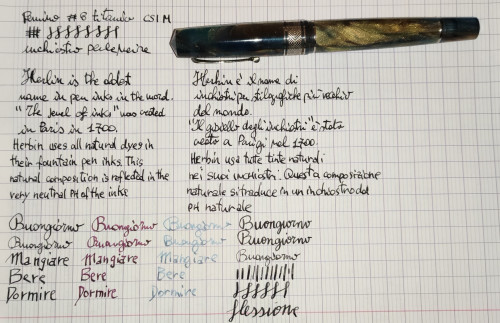 Pennino #8 titanio CSI M
inchiostro perle noire
Herbin is the oldest
name in pen inks in the word.
"The jewel of inks" was created
in Paris in 1700.
Herbin uses all natural dyes in
their fountain pen inks. This
natural composition is reflected in the
very neutral PH of the inks
Herbin è il name di
inchiostri per stilografiche più vecchio
del mondo.
"Il gioiello degli inchiostri" è stato
creato a Parigi nel 1700.
Herbin usa tutte tinte naturali
nei suoi inchiostri. Questa composizione
naturale si traduce in un inchiostro dal
PH naturale
Buongiorno Buongiorno Buongiorno Buongiorno
Buongiorno Buongiorno Buongiorno Buongiorno
Mangiare Mangiare Mangiare Buongiorno
Bere Bere Bere
Dormire Dormire Dormire
flessione